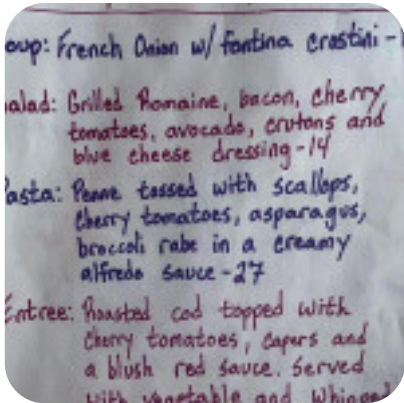 oup: French Onion w/ fontina crostini -
alad: Grilled Romaine, bacon, cherry
tomatoes, avocado, crutons and
blue cheese dressing -14
Pasta: Penne tossed with scallops,
cherry tomatoes, asparagus,
broccoli rabe in a creamy
alfredo sauce -27
Entree: Roasted cod topped with
cherry tomatoes, capers and
a blush red sauce. Served
with vegetable and whipped